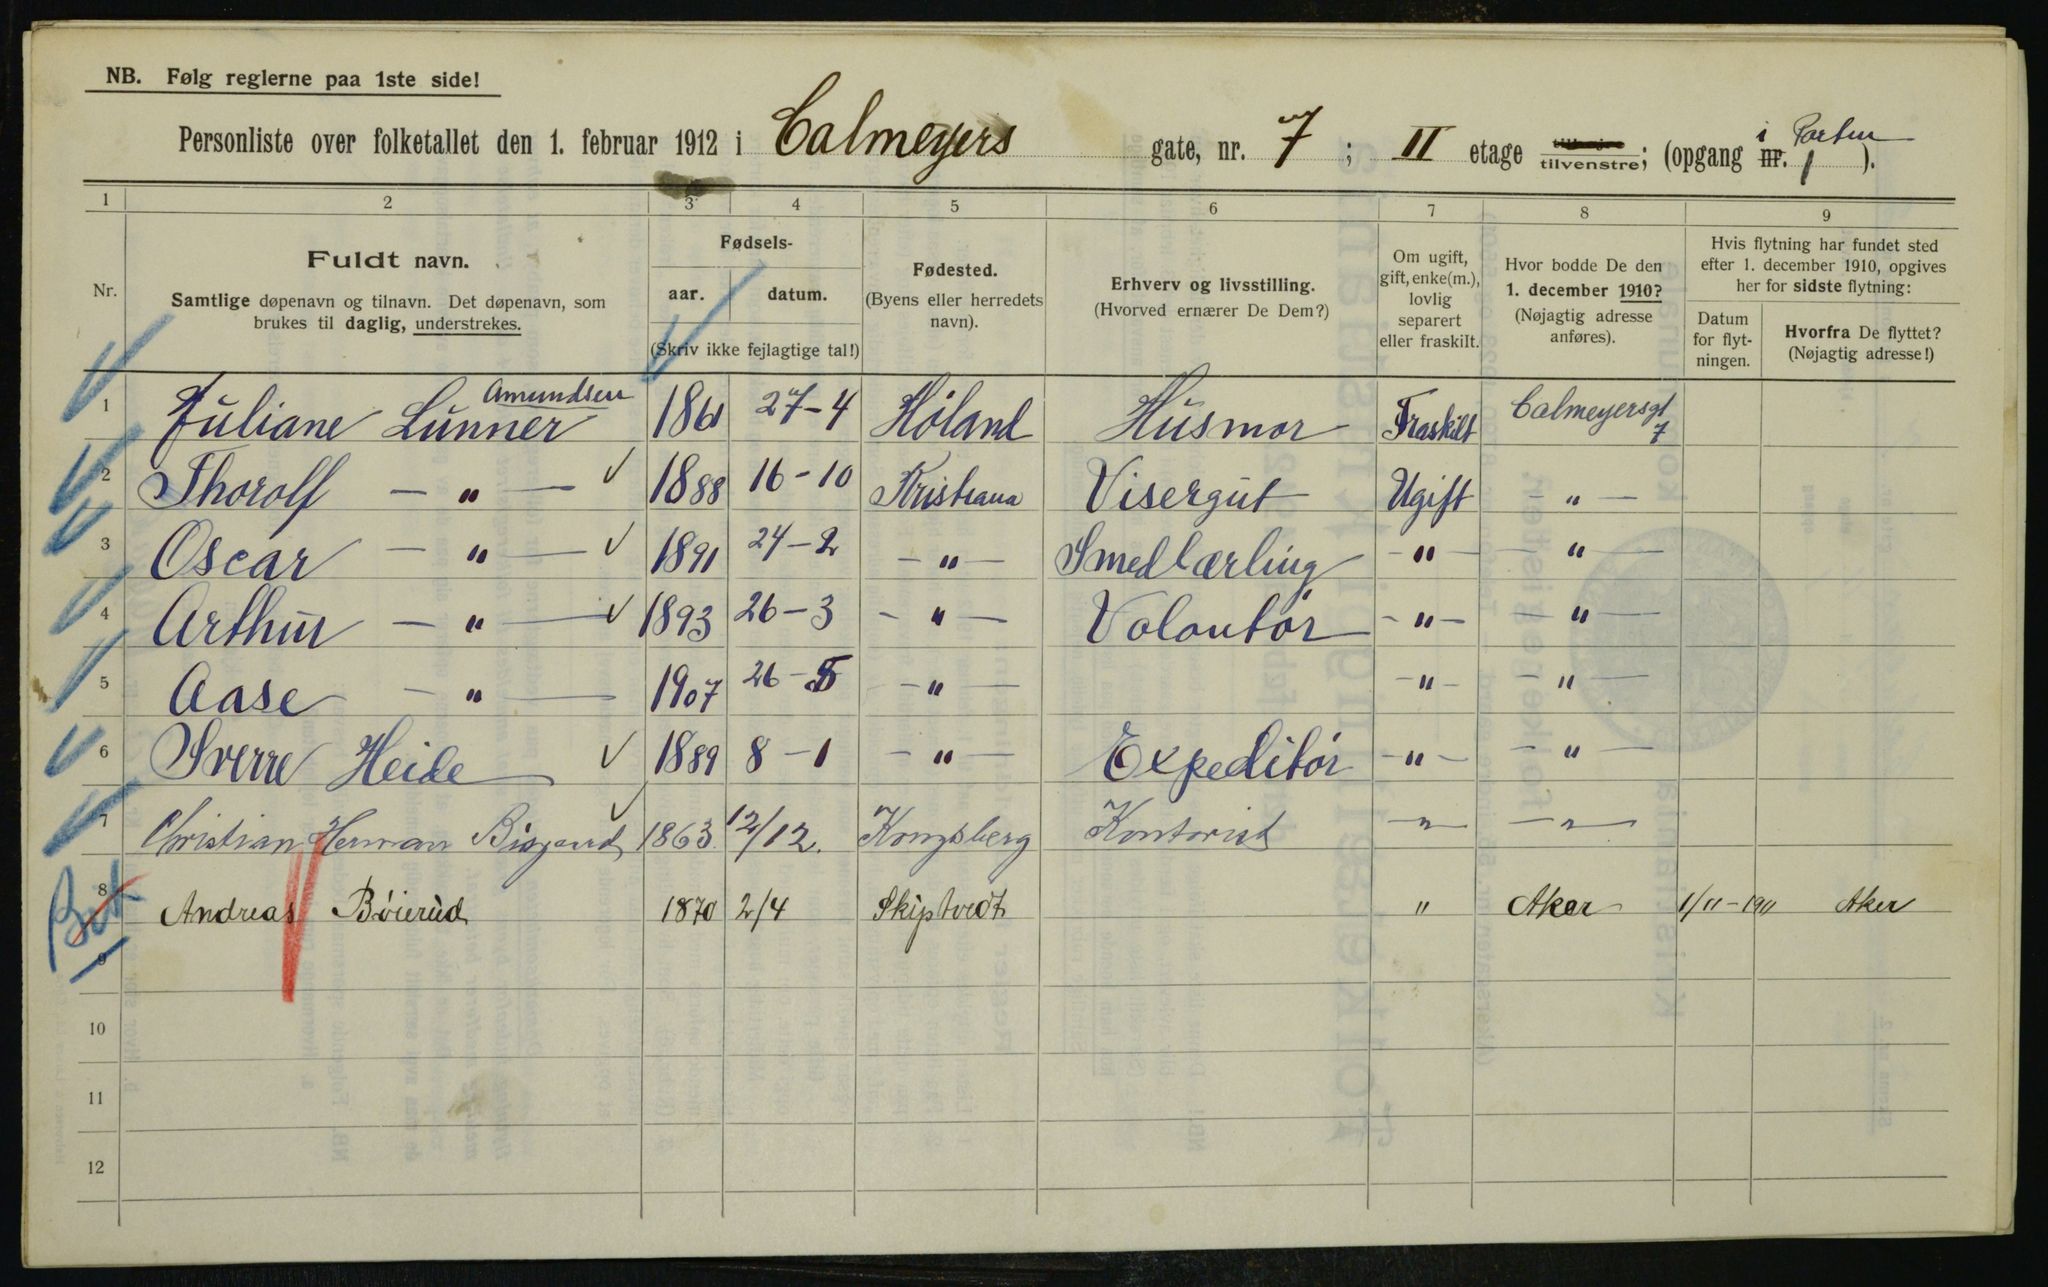 NB. Følg reglerne paa 1ste side!
Personliste over folketallet den 1. februar 1912 i Calmeyers gate, nr. 7; II etage tilvenstre; (opgang nr. 1 i Porten).
1 2 3 4 5 6 7 8 9
Nr.
Fuldt navn.
Samtlige døpenavn og tilnavn. Det døpenavn, som
brukes til daglig, understrekes.
Fødsels-
aar. datum.
(Skriv ikke fejlagtige tal!)
Fødested.
(Byens eller herredets
navn).
Erhverv og livsstilling.
(Hvorved ernærer De Dem?)
Om ugift,
gift, enke(m.),
lovlig
separert
eller fraskilt.
Hvor bodde De den
1. december 1910?
(Nøjagtig adresse
anføres).
Hvis flytning har fundet sted
efter 1. december 1910, opgives
her for sidste flytning:
Datum
for flyt-
ningen.
Hvorfra De flyttet?
(Nøjagtig adresse!)
1 Juliane Lunner Amundsen 1861 27-4 Høland Husmor Fraskilt Calmeyersgt 7
2 Thorolf — " — 1888 16-10 Kristiana Visergut Ugift — " —
3 Oscar — " — 1891 24-2 — " — Smedlærling — " — — " —
4 Arthur — " — 1893 26-3 — " — Volontør — " — — " —
5 Aase — " — 1907 26-5 — " — — " — — " —
6 Sverre Heide 1889 8-1 — " — Expeditør — " — — " —
7 Christian Herman 1863 12/12. Kongsberg Kontorist — " — — " —
8 Andreas Bøierud 1870 2/4 Skiptvedt " Aker 1/11-1911 Aker
9
10
11
12